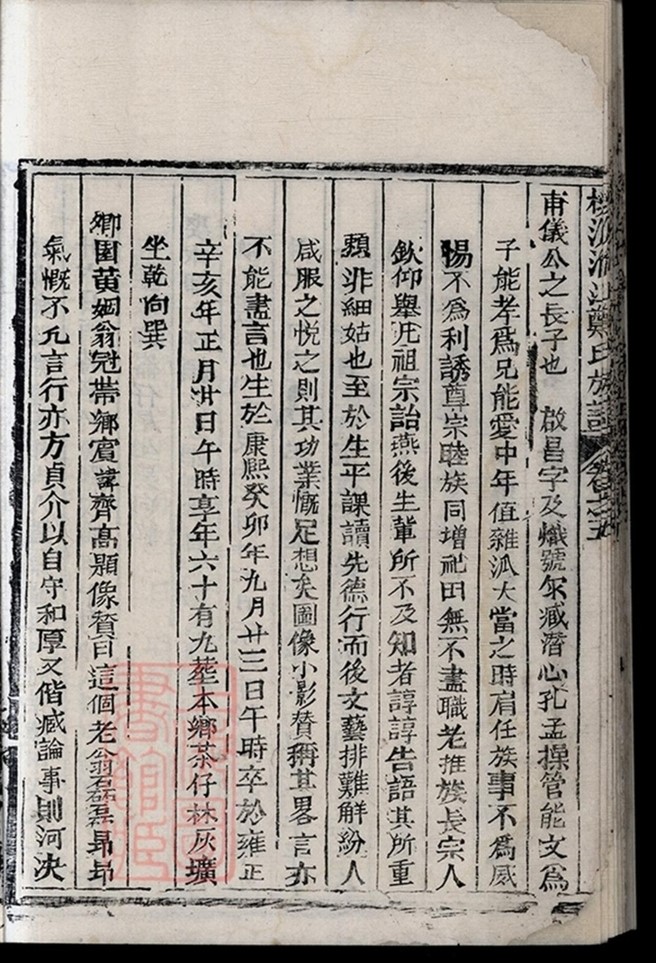 鄭氏族譜
甫儀公之長子也 啟昌字及熾號尔臧潛心孔孟操管能文為
子能孝為兄能愛中年值雜派大當之時肩任族事不為威
惕不為利誘尊宗睦族同增祀田無不盡職老推族長宗人
欽仰舉凡祖宗詒燕後生輩所不及知者諄諄告語其所重
類非細姑也至於生平課讀先德行而後文藝排難解紛人
咸服之悅之則其功業慨足想矣圖像小影贊稱其畧言亦
不能盡言也生於康熙癸卯年九月廿三日午時卒於雍正
辛亥年正月廿日午時享年六十有九塟本鄉茶仔林灰壙
坐乾向巽
鄉國黃姻翁冠帯鄉賓諱齊髙題像賛曰這個老翁磊磊昻昻
氣慨不凢言行亦方貞介以自守和厚又偕臧論事則河决